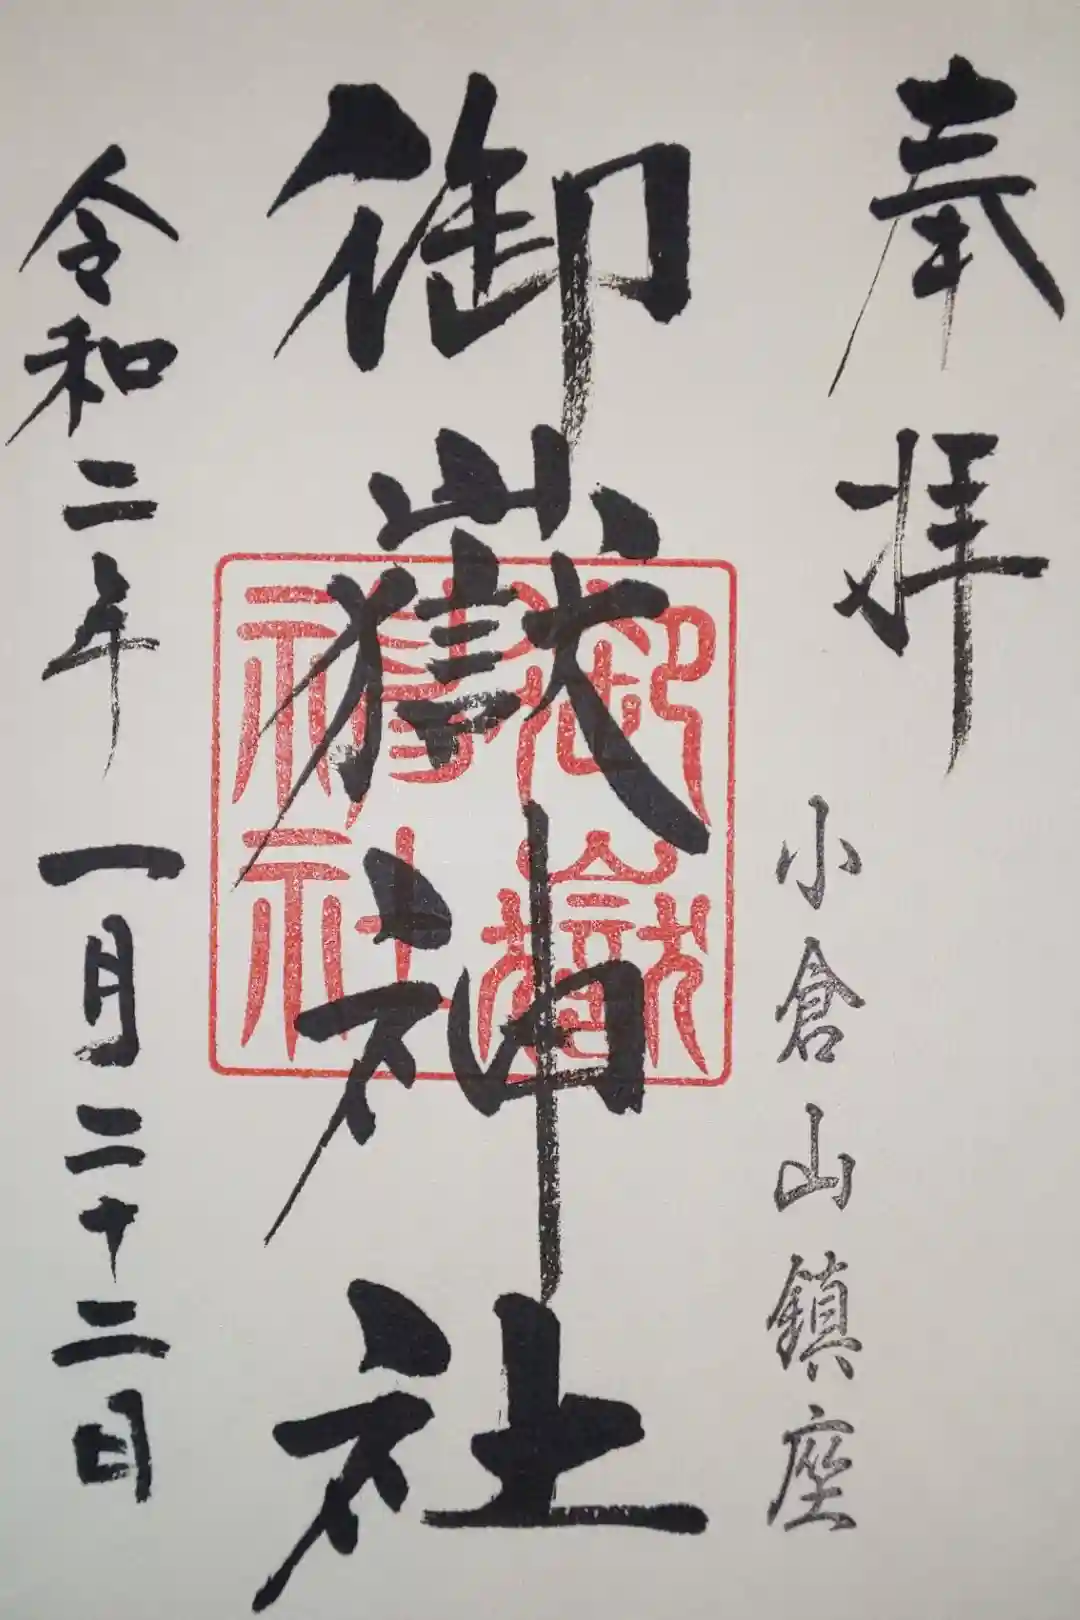 奉拝
小倉山鎮座
御嶽神社
御嶽神社
令和二年 一月二十二日